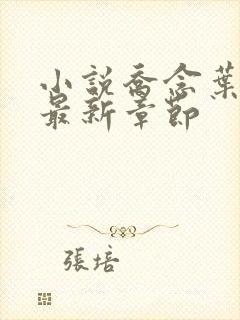 小說喬念葉
最新章節
張培